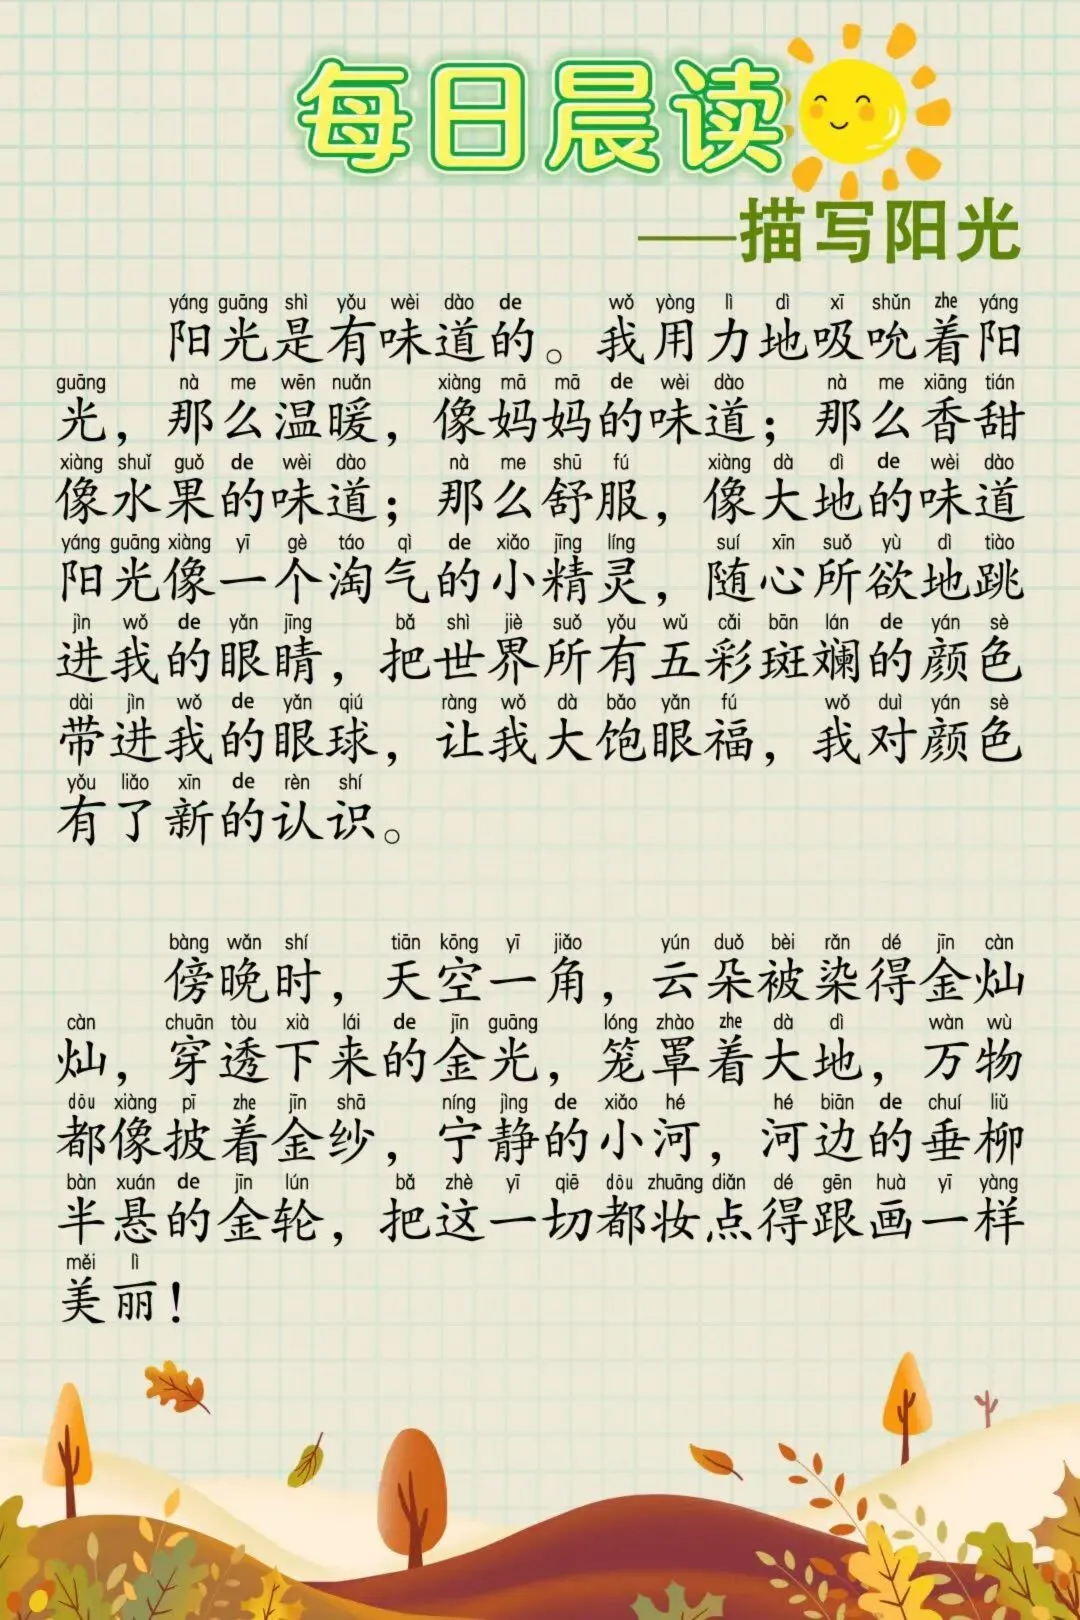 每日晨读
——描写阳光
yáng guāng shì yǒu wèi dào de wǒ yòng lì dì xī shǔn zhe yáng
阳光是有味道的。我用力地吸吮着阳
guāng nà me wēn nuǎn xiàng mā mā de wèi dào nà me xiāng tián
光，那么温暖，像妈妈的味道；那么香甜
xiàng shuǐ guǒ de wèi dào nà me shū fú xiàng dà dì de wèi dào
像水果的味道；那么舒服，像大地的味道
yáng guāng xiàng yī gè táo qì de xiǎo jīng líng suí xīn suǒ yù dì tiào
阳光像一个淘气的小精灵，随心所欲地跳
jìn wǒ de yǎn jīng bǎ shì jiè suǒ yǒu wǔ cǎi bān lán de yán sè
进我的眼睛，把世界所有五彩斑斓的颜色
dài jìn wǒ de yǎn qiú ràng wǒ dà bǎo yǎn fú wǒ duì yán sè
带进我的眼球，让我大饱眼福，我对颜色
yǒu liǎo xīn de rèn shí
有了新的认识。
bàng wǎn shí tiān kōng yī jiǎo yún duǒ bèi rǎn dé jīn càn
傍晚时，天空一角，云朵被染得金灿
càn chuān tòu xià lái de jīn guāng lóng zhào zhe dà dì wàn wù
灿，穿透下来的金光，笼罩着大地，万物
dōu xiàng pī zhe jīn shā níng jìng de xiǎo hé hé biān de chuí liǔ
都像披着金纱，宁静的小河，河边的垂柳
bàn xuán de jīn lún bǎ zhè yī qiē dōu zhuāng diǎn dé gēn huà yī yàng
半悬的金轮，把这一切都妆点得跟画一样
měi lì
美丽！